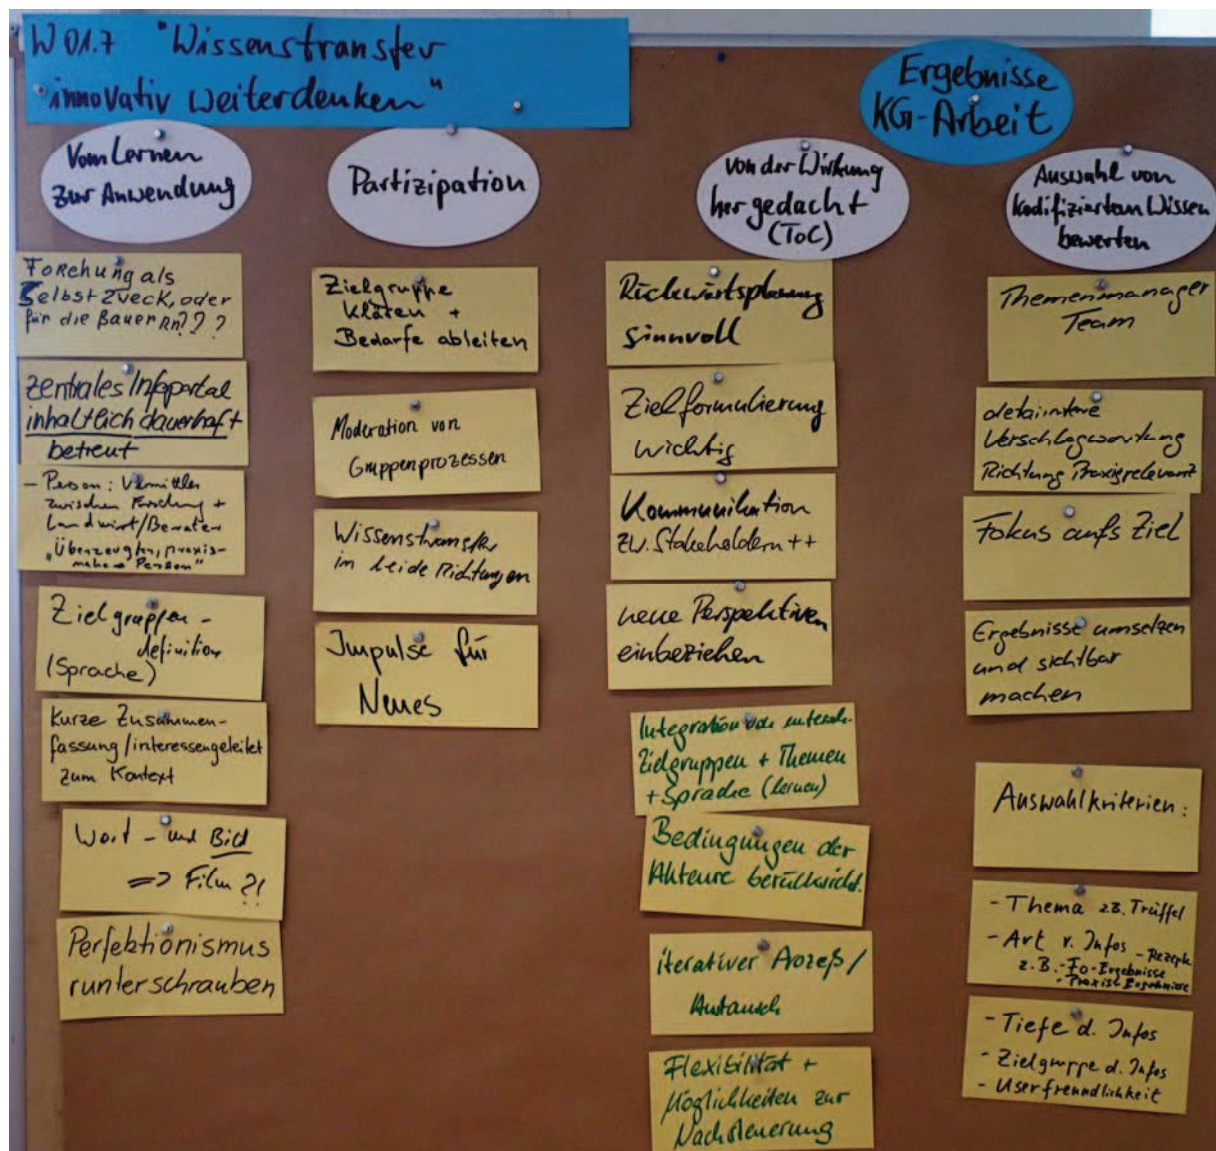 W 01.7 "Wissenstransfer
"innovativ weiterdenken"
Ergebnisse
KG-Arbeit
Vom Lernen
zur Anwendung
Forchung als
Selbstzveck, oder
für die Bauern???
zentrales Infoportal
inhaltlich dauerhaft
betreut
- Person: Vermittler
zwischen Forschung +
Landwirt/Berater
"Überzeugten, praxis-
nahe Person"
Zielgruppen-
definition
(Sprache)
Kurze Zusammen-
fassung/interessengeleitet
zum Kontext
Wort- und Bild
=> Film?!
Perfektionismus
runterschrauben
Partizipation
Zielgruppe
klären +
Bedarfe ableiten
Moderation von
Gruppenprozessen
Wissenstransfer
in beide Richtungen
Impulse für
Neues
von der Wirkung
her gedacht
(ToC)
Rückwärtsplanung
sinnvoll
Zielformulierung
wichtig
Kommunikation
zw. Stakeholdern ++
neue Perspektiven
einbeziehen
Integration von untersch.
Zielgruppen + Themen
+ Sprache (lernen)
Bedingungen der
Akteure berücksicht.
iterativer Prozeß/
Austausch
Flexibilität +
Möglichkeiten zur
Nachsteuerung
Auswahl von
kodifiziertem Wissen
bewerten
Themenmanager
Team
Verschlagwortung
Richtung Praxisrelevanz
Fokus aufs Ziel
Ergebnisse umsetzen
und sichtbar
machen
Auswahlkriterien:
- Thema z.B. Trüffel
- Art v. Infos - Rezepte
z.B. - Fo-Ergebnisse
- Praxis Ergebnisse
- Tiefe d. Infos
- Zielgruppe d. Infos
- Userfreundlichkeit